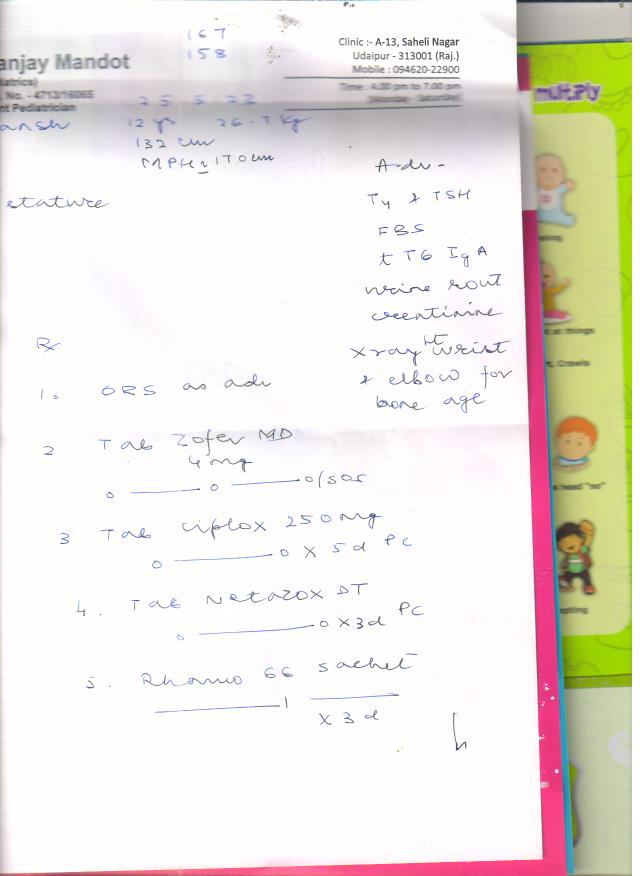 167
158
anjay Mandot
iatrics)
No. - 4713/16065
nt Pediatrician
Clinic :- A-13, Saheli Nagar
Udaipur - 313001 (Raj.)
Mobile : 094620-22900
Time : 4.30 pm to 7.00 pm
(Monday - Saturday)
25.5.23
ansh 12 yrs 26.7 kg
132 cm
MPH ~ 170 cm
etature
Adv -
T4 & TSH
FBS
t TG IgA
urine rout
creatinine
xray wrist
& elbow for
bone age
Rx
1. ORS as adv
2 Tab Zofer MD
4mg
0 —— 0 —— 0/sos
3 Tab Ciplox 250mg
0 —— 0 x 5d PC
4. Tab Netazox DT
0 —— 0 x3d PC
5. 66 sachet
—— 1 ——
x 3 d
multiply
at things
t, Crawls
head "no"